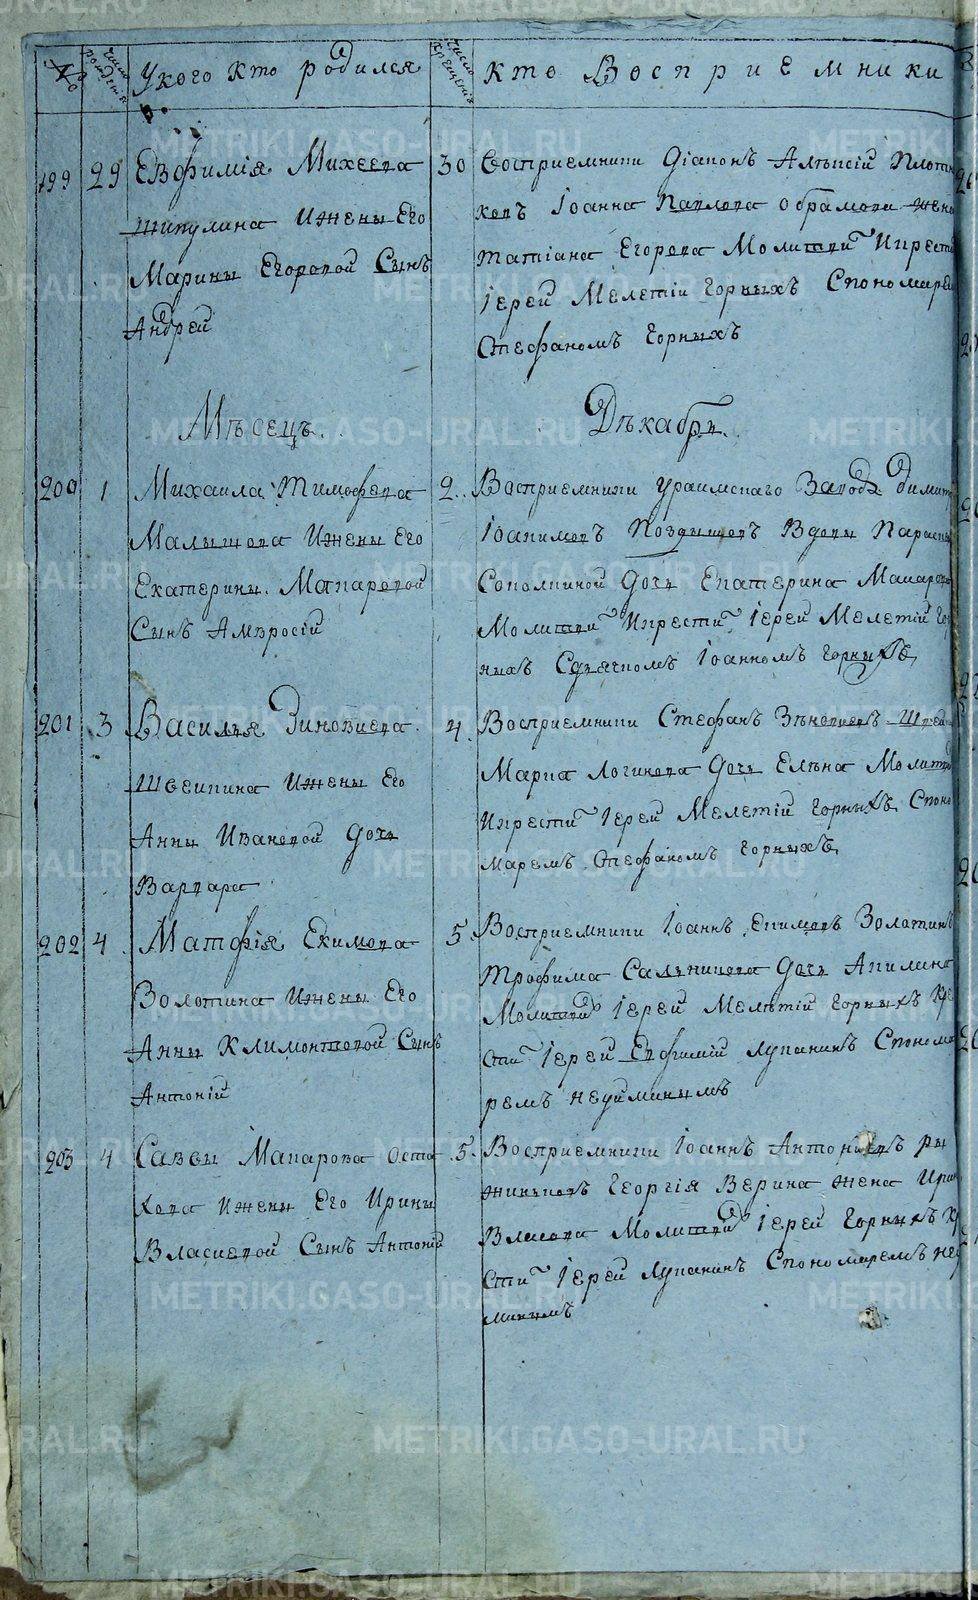 №
число рождения
У кого кто родился
число крещения
кто Восприемники
199
29
Евфимия Михеева
Шипулина и жены Его
Марины Егоровой Сынъ
Андрей
30
Восприемники Діаконъ Алѣксій Плотни
ковъ Іоанна Павлова Абрамова жена
Татіана Егорова Молитви И крести
Іерей Мелетій Горныхъ Спономарем
Стефаномъ Горныхъ
Мѣсецъ
Дѣкабрь
200
1
Михаила Тимофеева
Малышева И жены Его
Екатерины Макаровой
Сынъ Амвросій
2
Восприемники Ураимскаго Завода Димит
Іоакимовъ Поздышевъ Вдовы Параско
Соколкиной дочь Екатерина Макарова
Молитви И крести Іерей Мелетій Гор
ныхъ Сдьячкомъ Іоанномъ Горныхъ
201
3
Василья Зиновиева
Швейкина И жены Его
Анны Ивановой дочь
Варвара
4
Восприемники Стефанъ Зѣновиевъ Швей
Марка Логинова дочь Елѣна Молитви
И крести Іерей Мелетій Горныхъ Споно
маремъ Стефаномъ Горныхъ
202
4
Матфія Екимова
Золотина И жены Его
Анны Климонтовой Сынъ
Антоній
5
Восприемники Іоаннъ Екимовъ Золотинъ
Трофима Сальникова дочь Акилина
Молитви Іерей Мелѣтій Горныхъ Кре
сти Іерей Евфимій Лупанинъ Спонома
ремъ Неуйминымъ
203
4
Саввы Макарова Оста
кова И жены Его Ирины
Власиевой Сынъ Антоній
5
Восприемники Іоаннъ Антоніевъ ры
жиковъ Георгія Верина жена Ирин
Власова Молитви Іерей Горныхъ Кр
сти Іерей Лупанинъ Спономаремъ Неу
минымъ
METRIKI.GASO-URAL.RU